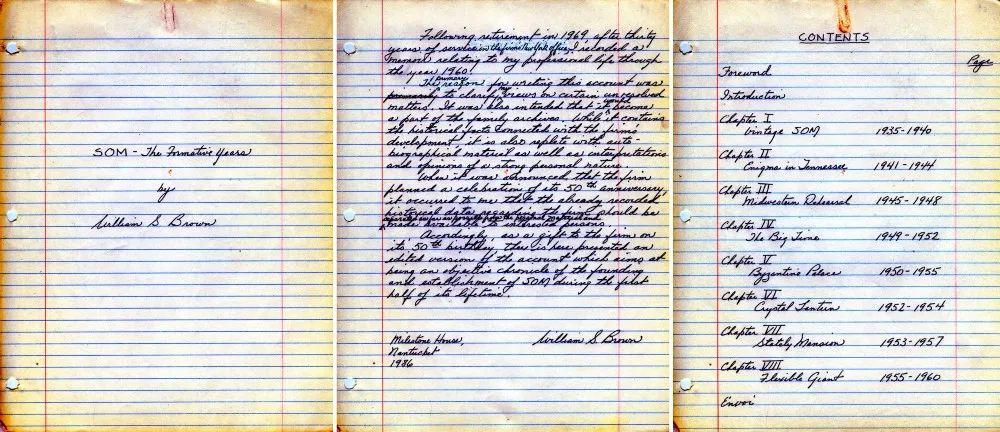 SOM - The Formative Years
by
William S Brown
Following retirement in 1969, after thirty
years of service in the firm's New York office, I recorded a
memoir relating to my professional life through
the year 1960.
The primary reason for writing this account was
to clarify my views on certain unresolved
matters. It was also intended that it become
a part of the family archives. While it contains
the historical facts connected with the firm's
development, it is also replete with auto-
biographical material as well as interpretations
and opinions of a strong personal nature.
When it was announced that the firm
planned a celebration of its 50th anniversary,
it occurred to me that the already recorded
historical data regarding the firm should be
made available to interested persons.
Accordingly, as a gift to the firm on
its 50th birthday, there is here presented an
edited version of the account which aims at
being an objective chronicle of the founding
and establishment of SOM during the first
half of its lifetime.
Milestone House,
Nantucket
1986
William S Brown
CONTENTS
Page
Foreword
Introduction
Chapter I
Vintage SOM 1935-1940
Chapter II
Enigma in Tennessee 1941-1944
Chapter III
Midwestern Rehearsal 1945-1948
Chapter IV
The Big Time 1949-1952
Chapter V
Byzantine Palace 1950-1955
Chapter VI
Crystal Lantern 1952-1954
Chapter VII
Stately Mansion 1953-1957
Chapter VIII
Flexible Giant 1955-1960
Envoi